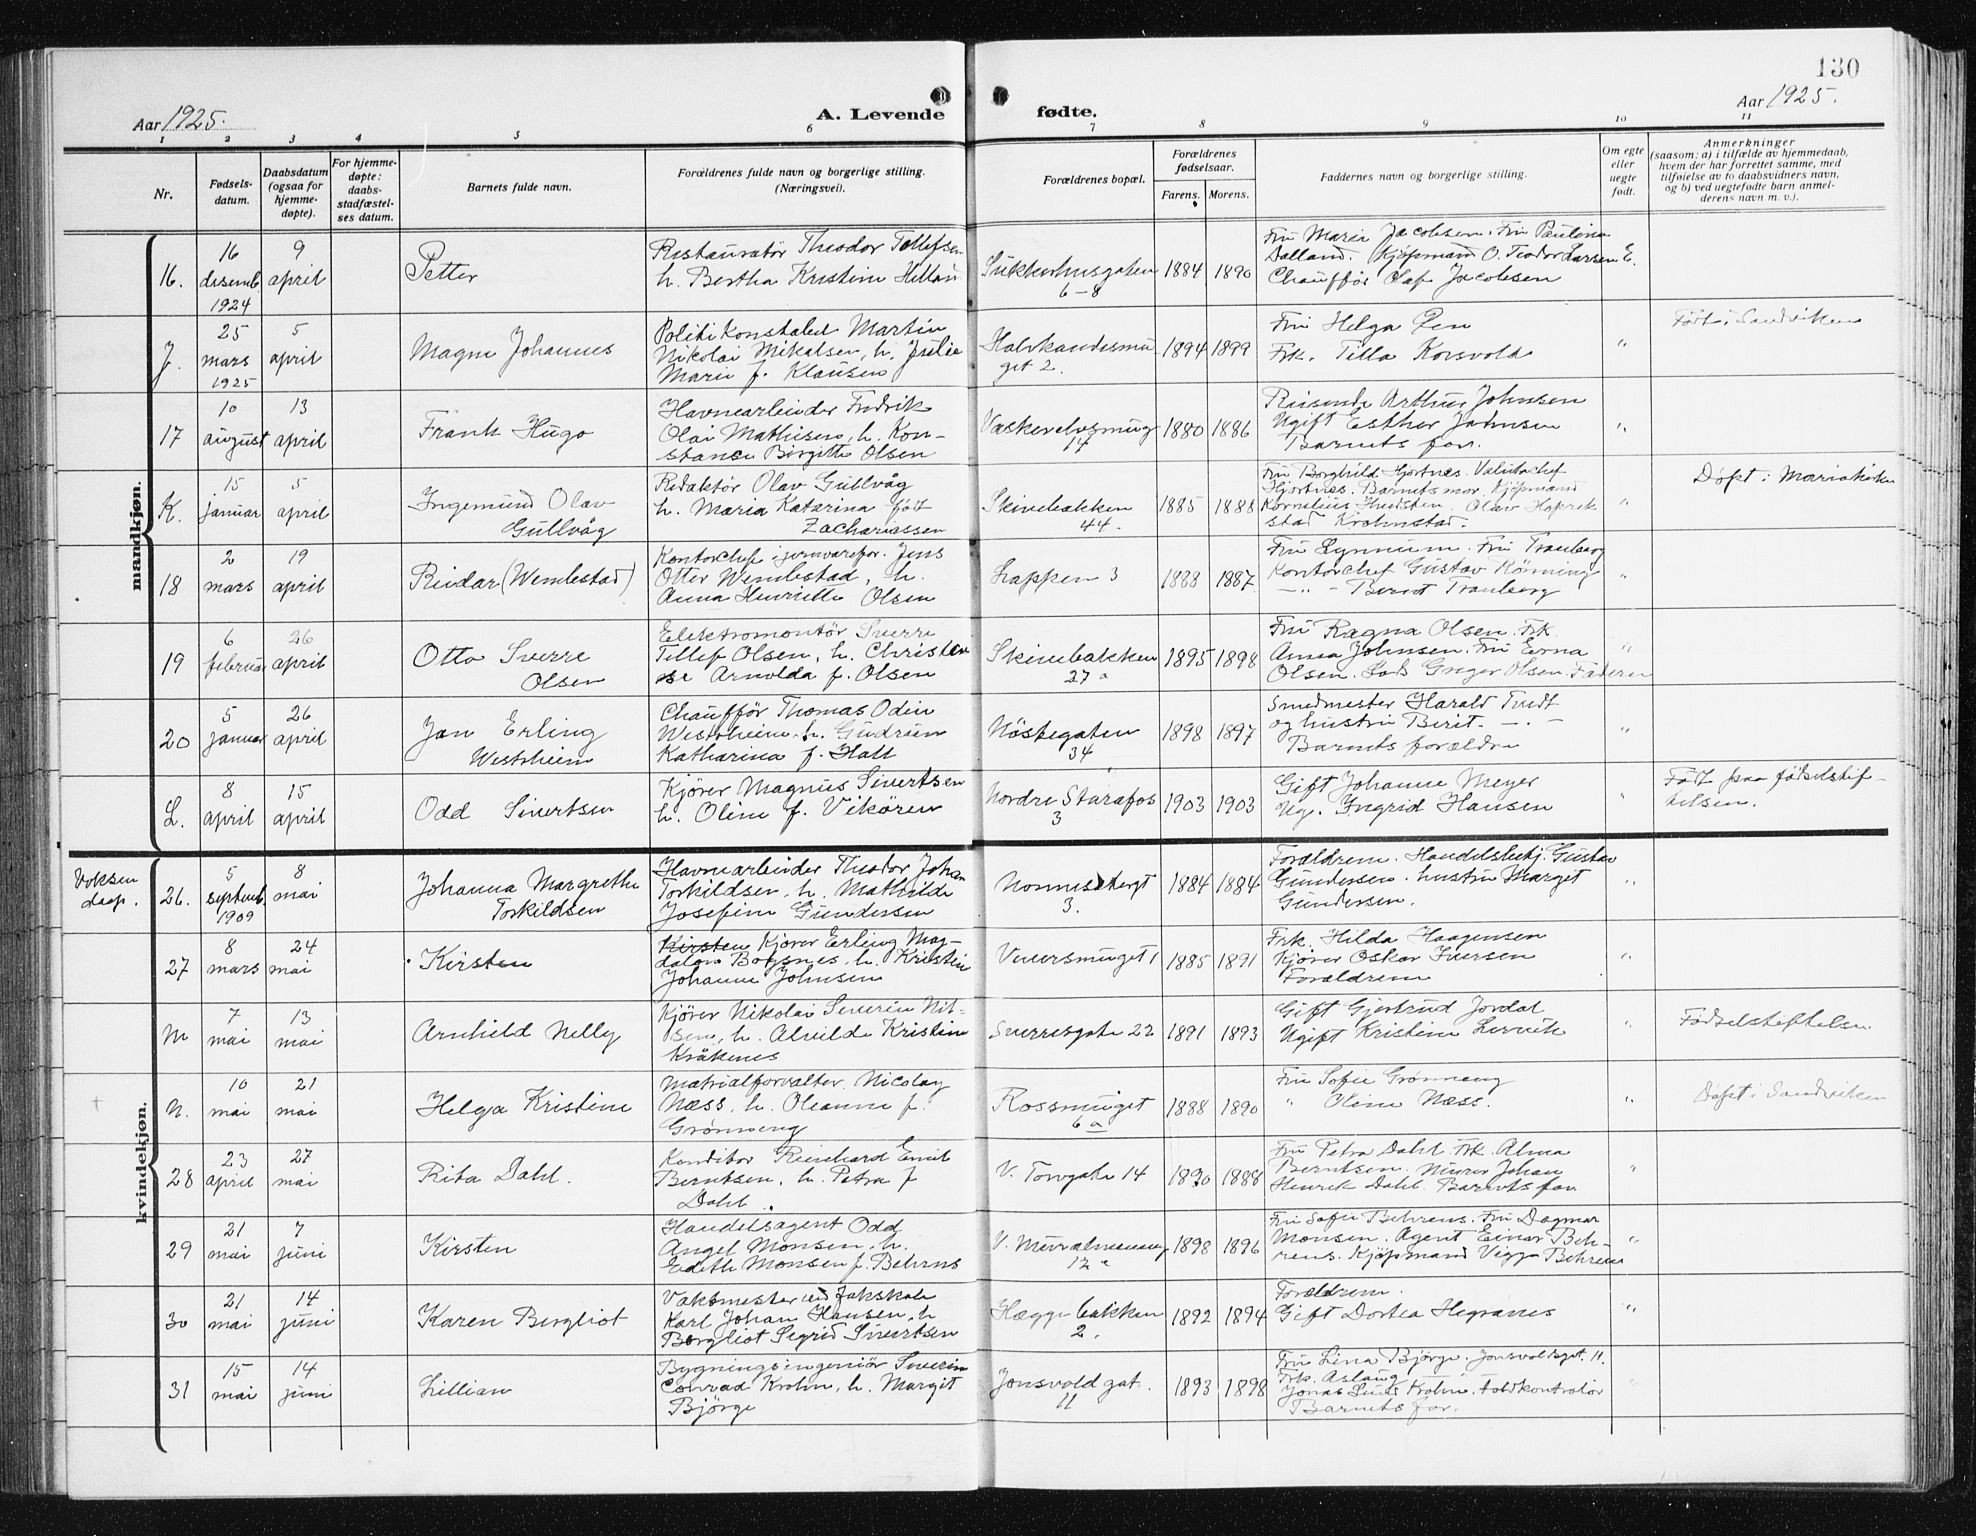 130
Aar 1925.
A. Levende
fødte.
Aar 1925.
1 2 3 4 5 6 7 8 9 10 11
Nr.
Fødsels-
datum.
Daabsdatum
(ogsaa for
hjemme-
døpte).
For hjemme-
døpte:
daabs-
stadfæstel-
ses datum.
Barnets fulde navn.
Forældrenes fulde navn og borgerlige stilling.
(Næringsvei).
Forældrenes bopæl.
Forældrenes
fødselsaar.
Farens. Morens.
Faddernes navn og borgerlige stilling.
Om egte
eller
uegte
født.
Anmerkninger
(saasom: a) i tilfælde av hjemmedaab,
hvem der har forrettet samme, med
tilføielse av to daabsvidners navn,
og b) ved uegtefødte barn anmel-
derens navn m. v.).
mandkjøn.
16.
16
desemb.
1924
9
april
Petter
Restauratør Theodor Tollefsen
h. Bertha Kristine
Sukkerhusgaten
6-8
1884
1890
Fru Maria Jacobsen. Fru Paulina
Dalland. Kjöpmand O. Teodor Larsen
Chaufför Olaf Jacobsen
E.
J.
25
mars
1925
5
april
Magne Johannes
Politikonstabel Martin
Nikolai Mikalsen, h. Julie
Marie f. Klausen
Halvkandesmu
get 2.
1894
1899
Fru Helga
Frk. Tilla Korsvold
"
Født i Sandviken
17
10
august
13
april
Frank Hugo
Havnearbeider Fredrik
Olai Mathisen, h. Kon-
stance Birgitte Olsen
Vaskerelvsmug
17
1880
1886
Reisende Arthur Johnsen
Ugift Esther Johnsen
Barnets far.
"
K.
15
januar
5
april
Ingemund Olav
Gullvåg
Redaktør Olav Gullvåg
h. Maria Katarina født
Zachariassen
Skivebakken
44.
1885
1888
Fru Borghild Hjortnes. Valutachef
Hjortnes. Barnets mor. Kjöpmand
Kornelius
stad Krohnstad.
"
Døpt i Mariakirken
18
2
mars
19
april
Reidar (Wembestad)
Kontorchef i jernvarefor. Jens
Otter Wembestad, h.
Anna Henriette Olsen
Lappen 3
1888
1887.
Fru Lynnum. Fru Tranberg
Kontorchef Gustav Rönning
-"- Bernt Tranberg
"
19
6
februar
26
april
Otto Sverre
Olsen
Elektromontör Sverre
Tellef Olsen, h. Christen
se Arnolda f. Olsen
Skivebakken
27 a
1895
1898
Fru Ragna Olsen. Frk.
Anna Johnsen. Fru Erna
Olsen. Greger Olsen. Faderen
"
20
5
januar
26
april
Jan Erling
Westrheim
Chaufför Thomas Odin
Westrheim. h. Gudrun
Katharina f. Hall
Nöstegaten
34
1898
1897
Smedmester Harald Tvedt
og hustru Berit -.-
Barnets forældre
"
L.
8
april
15
april
Odd Sivertsen
Kjörer Magnus Sivertsen
h. Oline f. Vikören
Nordre Starafos
3
1903
1903
Gift Johanne Meyer
Ug. Ingrid Hansen
"
Født paa fødselstif-
telsen.
kvindekjøn.
Voksen
daap.
26.
5
septemb.
1909
8
mai
Johanna Margrethe
Torkildsen
Havnearbeider Theodor Johan
Torkildsen, h. Mathilde
Josefine Gundersen
Nonneskergt
3.
1884
1884
Forældrene. Handelsbetj. Gustav
Gundersen. hustru Marget
Gundersen.
"
27
8
mars
24
mai
Kirsten
Kirsten Kjörer Erling Mag-
dalon Bogsnes, h. Kristine
Johanne Johnsen
Veversmuget 1
1885
1891
Frk. Hilda Haagensen
Kjörer Oskar Iversen
Forældrene
"
M
7
mai
13
mai
Arnhild Nelly
Kjörer Nikolai Severin Nil-
sen, h. Alvilde Kristine
Kråkenes
Sverresgate 22
1891
1893
Gift Gjertrud Jordal
Ugift Kristine Lervik
"
Fødselstiftelsen
N.
10
mai
21
mai
Helga Kristine
Matrialforvalter Nicolay
Næss, h. Oleanne f.
Grønneng
Rossmuget
6 a
1888
1890
Fru Sofie Grønneng
" Oline Næss.
"
Døpt i Sandviken
28
23
april
27
mai
Rita Dahl.
Konditor Reinhard Emil
Berntsen, h. Petra f
Dahl.
V. Torvgate 14
1890
1888
Fru Petra Dahl. Frk. Alma
Berntsen. Murer Johan
Henrik Dahl. Barnets far
"
29
21
mai
7
juni
Kirsten
Handelsagent Odd
Angel Monsen, h.
Edith Monsen f. Behrens
V. Muralmenning
12 a
1898
1896
Fru Sofie Behrens. Fru Dagmar
Monsen. Agent Einar Beh-
rens. Kjöpmand Viggo Behrens
"
30
21
mai
14
juni
Karen Bergliot
Vaktmester ved fakskole
Karl Johan Hansen, h
Bergliot Segrid Sivertsen
Hæggebakken
2.
1892
1894
Forældrene.
Gift Dortea Hegranes
"
31
15
mai
14
juni
Lillian
Bygningsingeniör Severin
Conrad Krohn, h. Margit
Björge
Jonsvoldgat.
11
1893
1898
Fru Lina Björge. Jonsvoldsgt. 11.
Frk. Aslaug
Jonas Lund Krohn. Toldkontrolør
Barnets far.
"